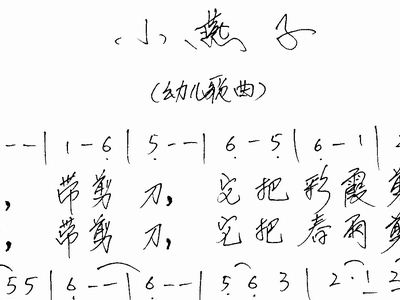 小燕子
(幼儿歌曲)
-- | 1 - 6̣ | 5̣ - - | 6̣ - 5̣ | 6̣ - 1 |
， 带剪刀， 它把彩霞剪
， 带剪刀， 它把春雨剪
5 5 | 6̣ - - | 6̣ - - | 5̣ 6̣ 3 | 2 · 1̣ 2